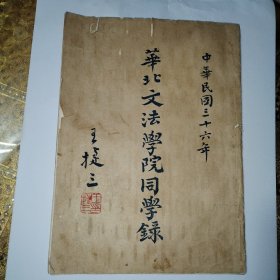 中華民國三十六年
華北文法學院同學錄
王捷三